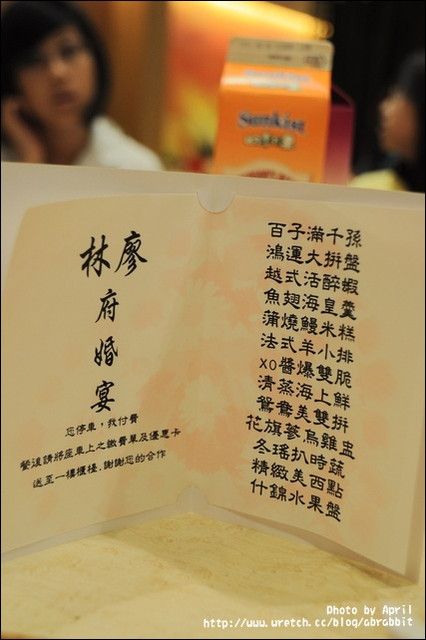 Sunkist
林廖
府
婚
宴
您停車，我付費
樂道請將座車上之繳費單及優惠卡
送至一樓櫃檯，謝謝您的合作
百子滿千孫
鴻運大拼盤
越式活醉蝦
魚翅海皇羹
蒲燒鰻米糕
法式羊小排
XO醬爆雙脆
清蒸海上鮮
鴛鴦美雙拼
花旗蔘烏雞盅
冬瑤扒時蔬
精緻美西點
什錦水果盤
Photo by April
http://www.wretch.cc/blog/abrabbit